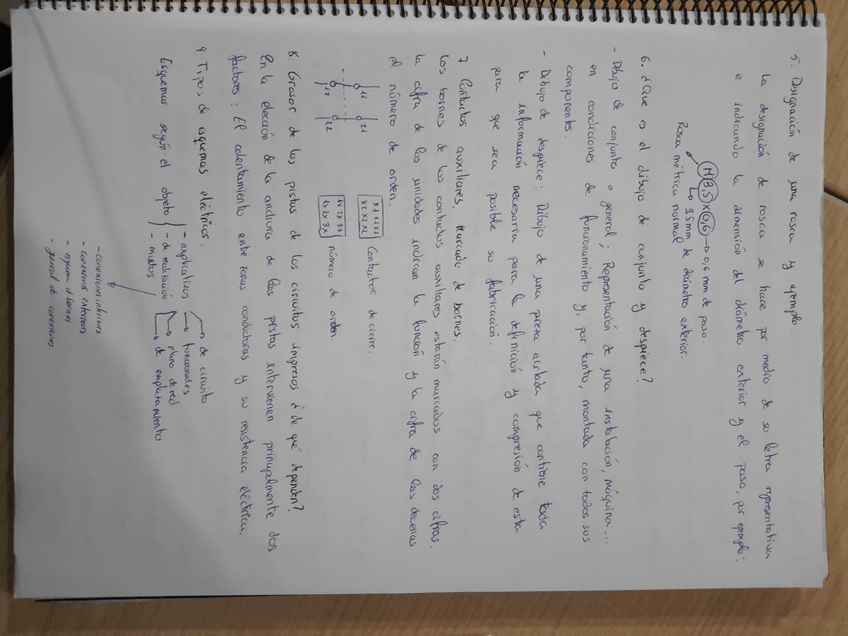 5. Designación de una rosca y ejemplo.
La designación de rosca se hace por medio de su letra representativa
e indicando la dimensión del diámetro exterior y el paso, por ejemplo:
M 3,5 x 0,6 → 0,6 mm de paso
3,5 mm de diámetro exterior.
Rosca métrica normal
6. ¿Que es el dibujo de conjunto y despiece?
- Dibujo de conjunto o general; Representación de una instalación, máquina...
en condiciones de funcionamiento y, por tanto, montada con todos sus
componentes.
- Dibujo de despiece: Dibujo de una pieza aislada que contiene toda
la información necesaria para la definición y compresión de esta
para que sea posible su fabricación.
7 Contactos auxiliares. Marcado de bornes.
Los bornes de los contactos auxiliares estarán marcados con dos cifras.
la cifra de las unidades indican la función y la cifra de las decenas
el número de orden.
11 21
12 22
x1 x1 x1 x1
x2 x2 x2 x2
Contactos de cierre.
1x 2x 3x
1x 2x 3x
número de orden.
8 Grosor de las pistas de los circuitos impresos ¿de qué dependen?
En la elección de la anchura de las pistas intervienen principalmente dos
factores: El calentamiento entre zonas conductoras y su resistencia eléctrica.
9. Tipos de esquemas eléctricos.
Esquemas según el objeto
- explicativos
- de circuito
- funcionales
- de realización
- plano de red
- de emplazamiento
- mixtos
- conexiones interiores
- conexiones exteriores
- general de conexiones.